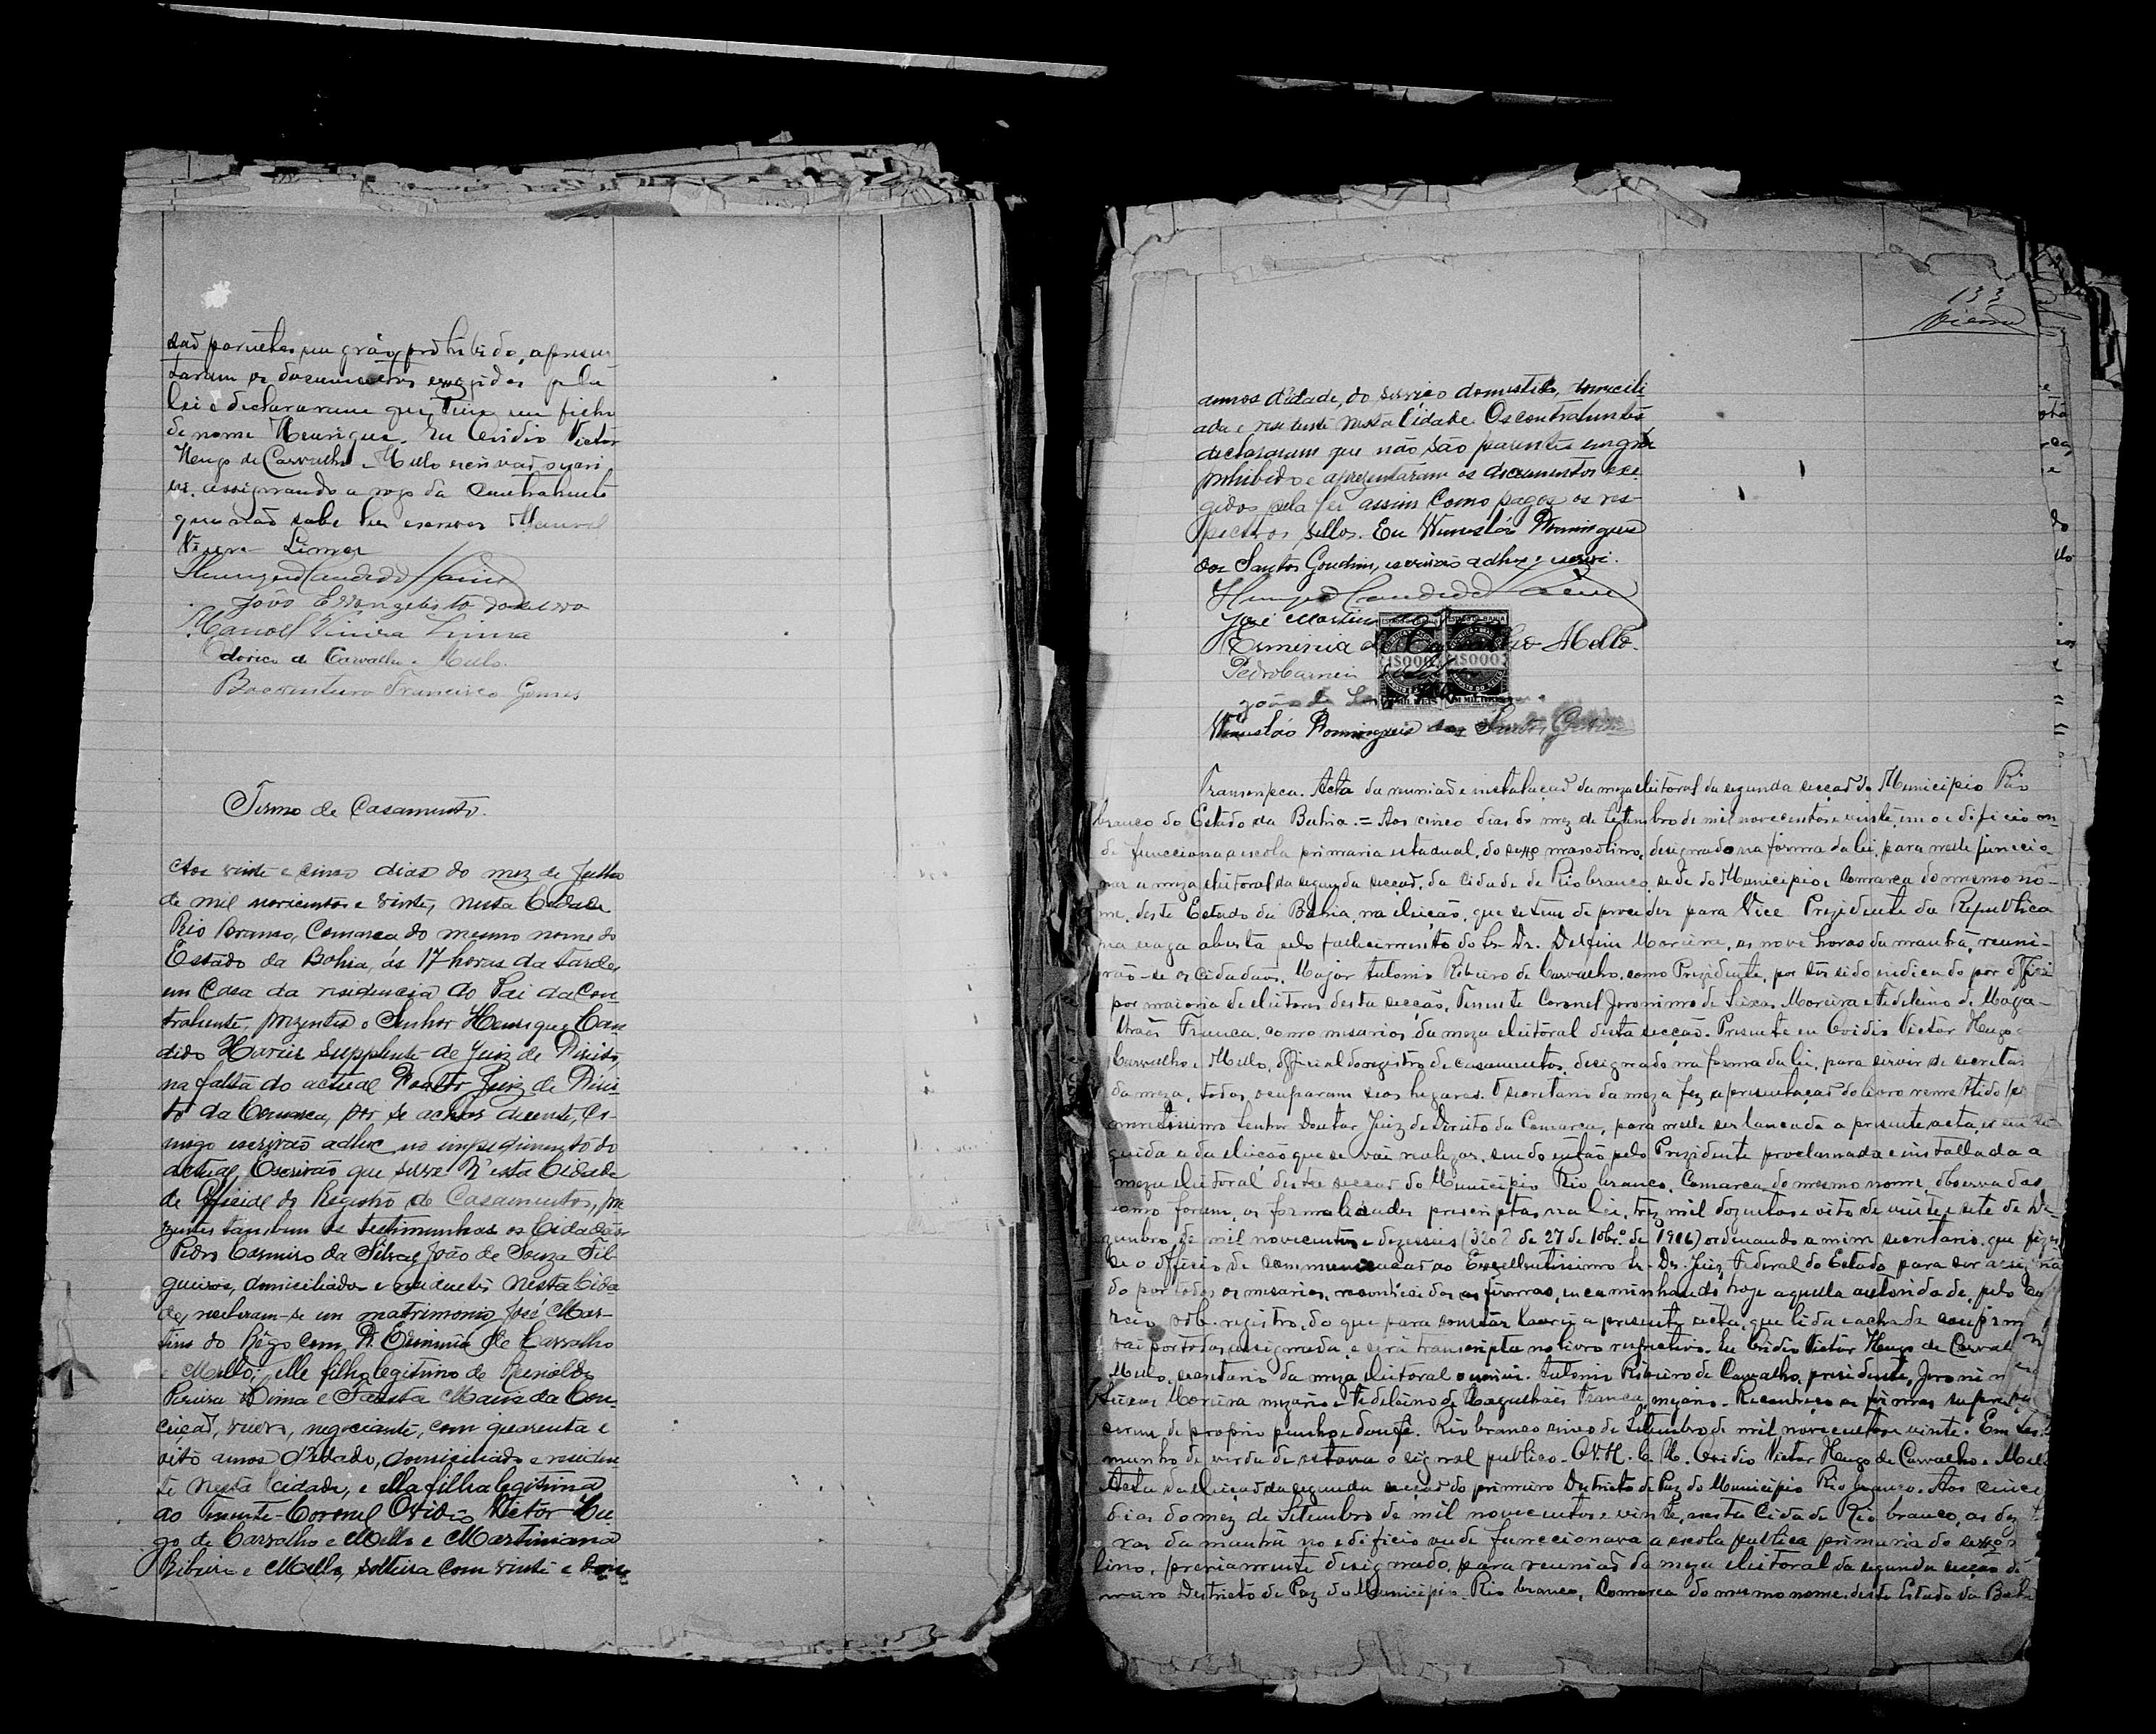 são parentes em gráo prohibido, apresen
taram os documentos exigidos pela
lei e declararam que tem um filho
de nome Henrique. Eu Ovidio Victor
Hugo de Carvalho e Mello escrivão o escri
vi, assignando a rogo da Contrahente
que não sabe ler escrever Manoel
Vieira Lima
Henrique Candido
João Evangelista
Manoel Vieira Lima
Odorico de Carvalho e Mello.
Boaventura Francisco Gomes
Termo de Casamento.
Aos vinte e cinco dias do mez de Julho
de mil novicentos e vinte, nesta Cidade
Rio Branco, Comarca do mesmo nome do
Estado da Bahia, ás 17 horas da tarde,
em Casa da residencia do Pai da Con-
trahente, prezentes o Senhor Henrique Can
dido supplente de Juiz de Direito,
na falta do actual Doutor Juiz de Direi
to da Comarca, por se achar doente, co-
migo escrivão adhoc no impedimento do
actual, Escrivão que serve n'esta Cidade
de Official do Registro de Casamentos, pre
zentes tambem as testimunhas os Cidadãos
Pedro Casmiro da Silva e João de Souza Fil
gueiras, domiciliados e residentes nesta Cida
de, receberam-se em matrimonio José Mar-
tins do Rêgo com D. Erminia de Carvalho
e Mello; elle filho legitimo de
Pereira Lima e Fausta Maria da Con-
ceição, viuvo, negociante, com quarenta e
oito annos d'idade, domiciliado e residen
te nesta cidade, e ella filha legitima
do Tenente-Coronel Ovidio Victor Hu
go de Carvalho e Mello e Martiniana
Ribeiro e Mello, solteira com vinte e dous
133
annos d'idade, do serviço domestico, domicili
ada e residente nesta Cidade. Os contrahentes
declararam que não são parentes em gráo
prohibido e apresentaram os documentos exi
gidos pela lei assim como pagos os res-
pectivos sellos. Eu Wenesláo Domingues
dos Santos Gondim, escrivão adhoc o escrevi.
Henrique Candido
José Martins
Erminia de Carvalho Mello.
Pedro
João de
Wenesláo Domingues dos Santos Gondim
ESTADO DA BAHIA ESTADO DA BAHIA
1$000 1$000
UM MIL REIS UM MIL REIS
Transcripca. Acta da reunião e installação da meza eleitoral da segunda secção do Municipio Rio
branco do Estado da Bahia. = Aos cinco dias do mez de Setembro de mil novecentos e vinte, em o edificio on
de funcciona a escola primaria estadual, do sexo masculino, designado na forma da lei, para nelle funccio
nar a meza eleitoral da segunda secção, da cidade de Rio branco, sede do Municipio e Comarca do mesmo no-
me, deste Estado da Bahia, na eleição, que se tem de proceder para Vice Prezidente da Republica
na vaga aberta pelo fallecimento do Sr. Dr. Delfim Moreira, as nove horas da manhã, reuni-
rão-se os cidadãos, Major Antonio Ribeiro de Carvalho, como Prezidente, por ter sido indicado por officio
por maioria de eleitores desta secção, Tenente Coronel Jeronimo de Seixas Moreira e Fidelcino de Maga-
lhães Franca, como mesarios da meza eleitoral desta secção. Presente eu Ovidio Victor Hugo
Carvalho e Mello, official do registro de casamentos, designado na forma da lei, para servir de secretar
da meza, todos, occuparam seos lugares. O secretario da meza fez apresentação do livro remettido pe
Senhor Doutor Juiz de Direito da Comarca, para nelle ser lançada a presente acta, e em se
guida a da eleição que se vai realizar, sendo então pelo Prezidente proclamada e installada a
meza eleitoral desta secção do Municipio Rio branco, Comarca do mesmo nome, observadas
como foram, as formalidades prescriptas na lei, trez mil dozentos e oito de vinte e sete de De-
zembro, de mil novecentos e dezesseis (3208 de 27 de 10br.º de 1916) ordenando a mim secretario que fizes
se o officio de communicação ao Excellentissimo Sr. Dr. Juiz Federal do Estado para ser assigna
do por todos os mesarios, reconhecidas as firmas, encaminhando hoje aquella autoridade, pelo Co
reio sob registro, do que para constar lavrei a presente acta, que lida e achada conform
vai por todos assignada, e será transcripta no livro respectivo. Eu Ovidio Victor Hugo de Carval
Mello, secretario da meza eleitoral o escrevi. Antonio Ribeiro de Carvalho, presidente, Jeronim
Seixas Moreira mezario e Fidelcino de Magalhães Franca, mezario. Reconheço as firmas supra
serem de proprio punho e dou fé. Rio branco cinco de Setembro de mil novecentos e vinte. Em tes
munho de verdade estava o signal publico. O.V.H. C. M. Ovidio Victor Hugo de Carvalho e Mello
Acta da eleição da segunda secção do primeiro Districto de Paz do Municipio Rio branco. Aos cinco
dias do mez de Setembro de mil novecentos e vinte, nesta Cidade Rio branco, as dez
ras da manhã no edificio onde funccionava a escola publica primaria do sexo
lino, previamente designado, para reunião da meza eleitoral da segunda secção do
meiro Districto de Paz do Municipio Rio branco, Comarca do mesmo nome, deste Estado da Bahia